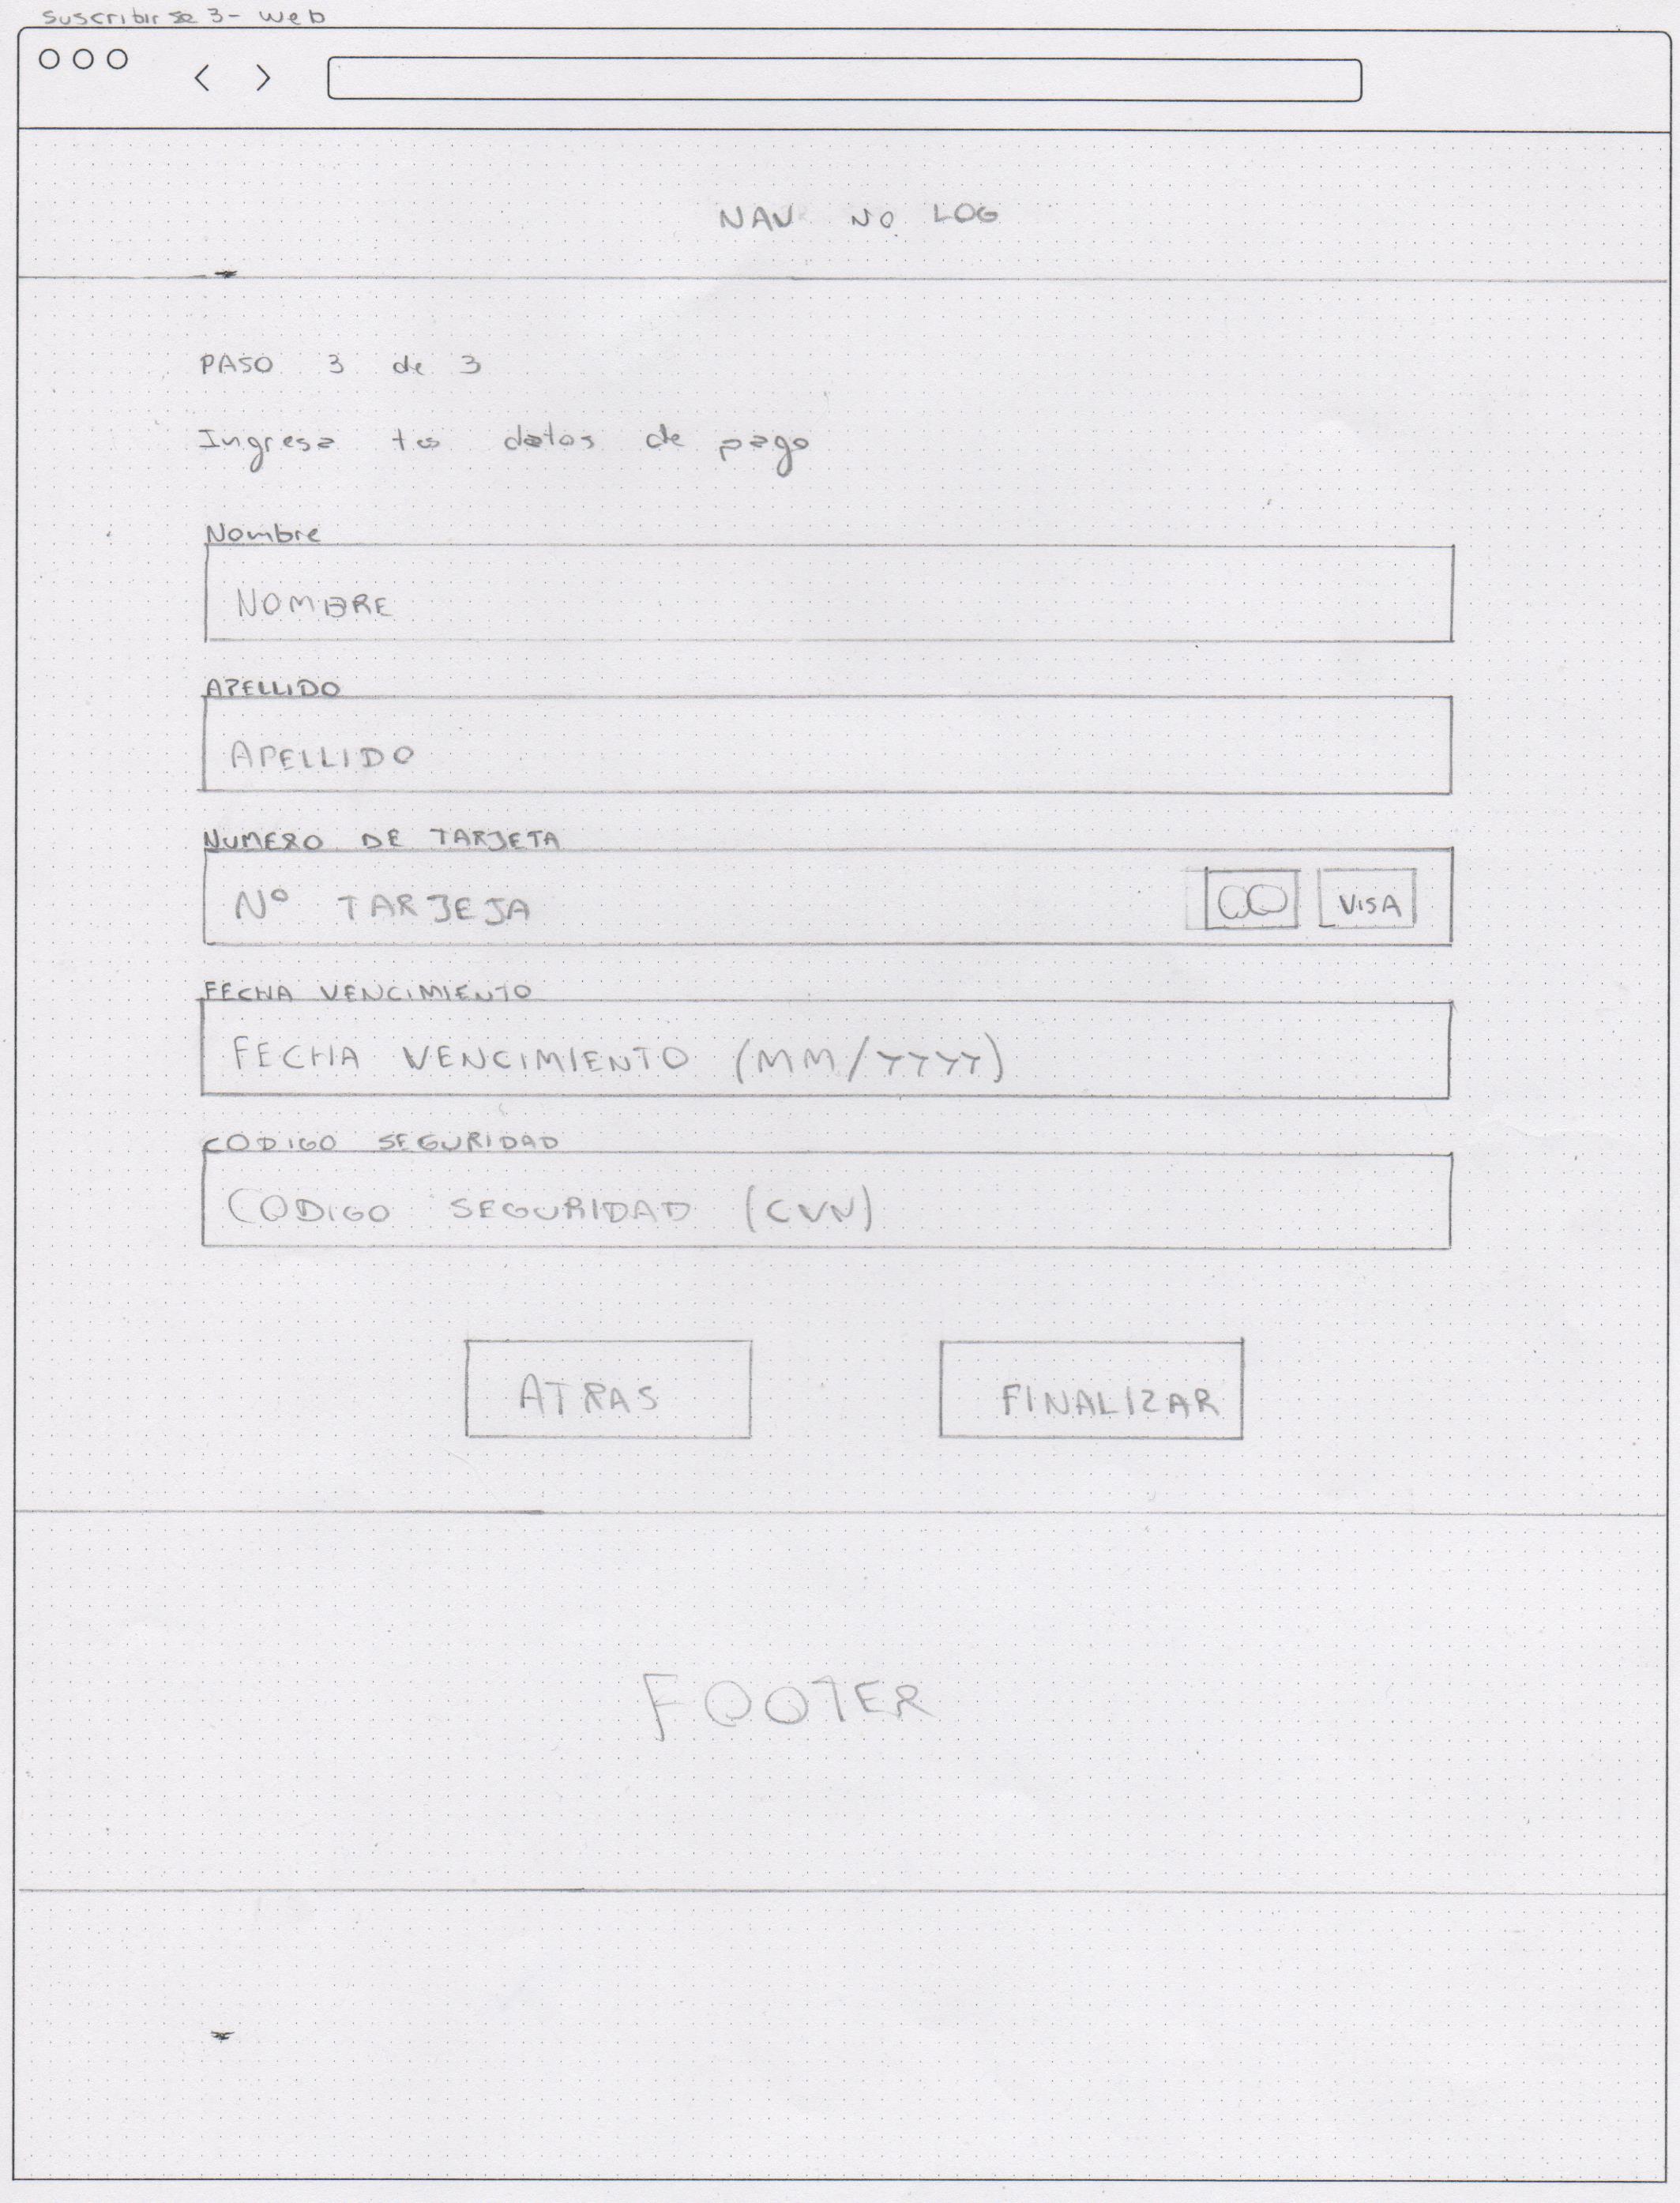 Suscribirse 3 - Web
NAV NO LOG
PASO 3 de 3
Ingresa tus datos de pago
Nombre
NOMBRE
APELLIDO
APELLIDO
NUMERO DE TARJETA
Nº TARJEJA
VISA
FECHA VENCIMIENTO
FECHA VENCIMIENTO (MM/YYYY)
CODIGO SEGURIDAD
CODIGO SEGURIDAD (CVN)
ATRAS
FINALIZAR
FOOTER